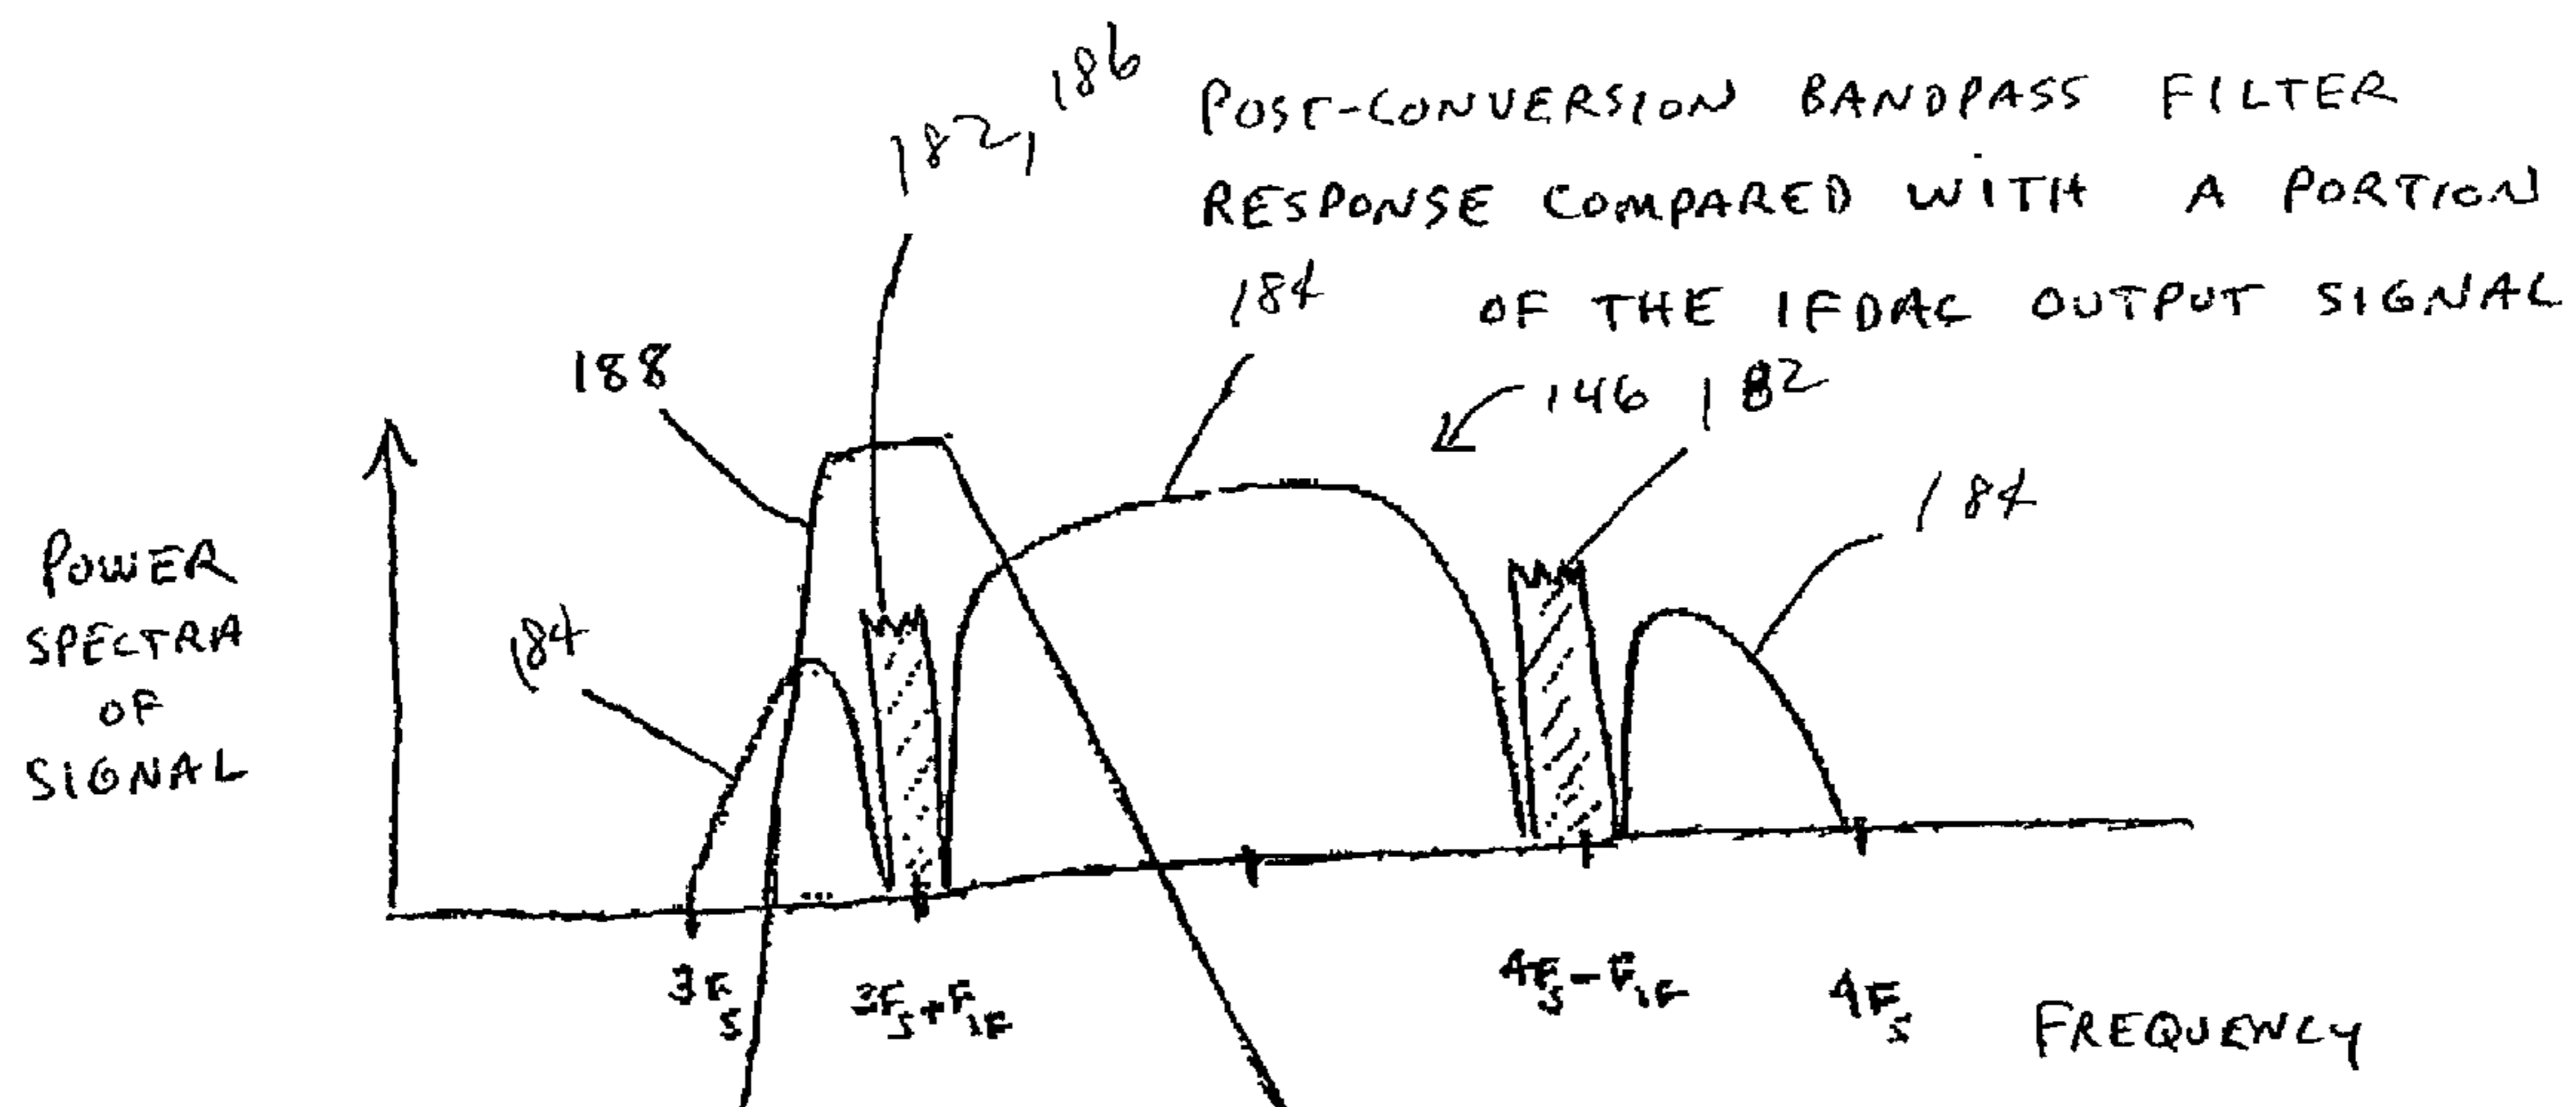 182, 186
POST-CONVERSION BANDPASS FILTER
RESPONSE COMPARED WITH A PORTION
OF THE IFDAC OUTPUT SIGNAL
184
188
146
182
184
184
POWER
SPECTRA
OF
SIGNAL
3FS
3FS+FIF
4FS-FIF
4FS
FREQUENCY